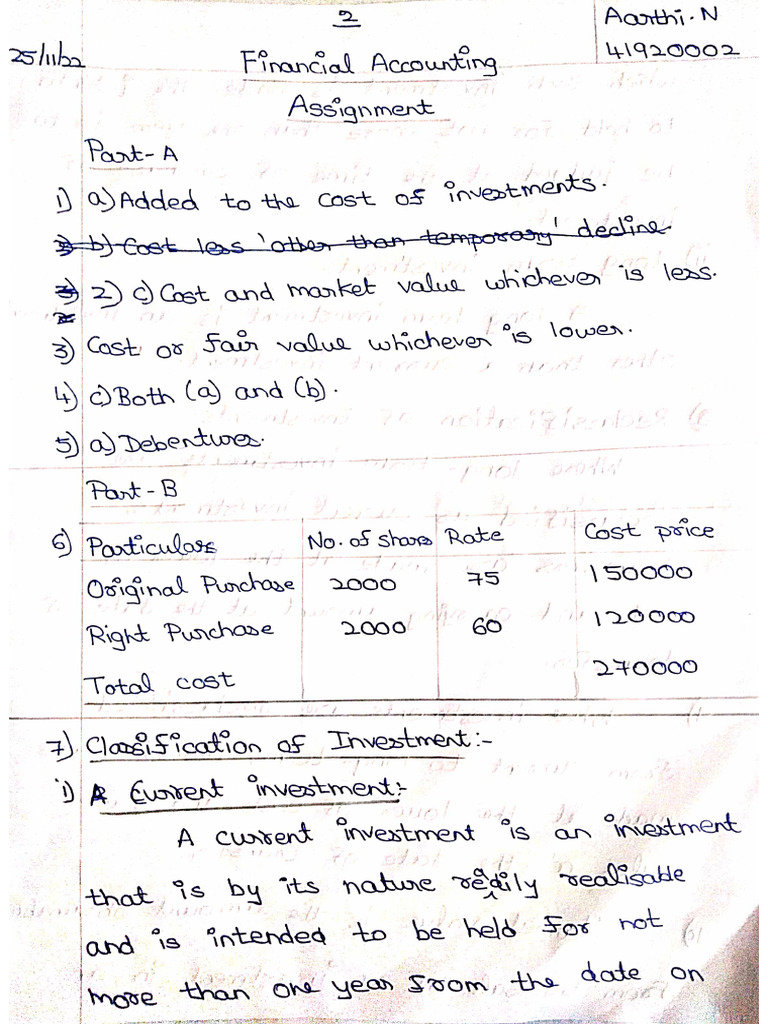 2
Aarthi.N
41920002
25/11/22
Financial Accounting
Assignment
Part-A
1) a) Added to the cost of investments.
3) b) Cost less 'other than temporary' decline
2) c) Cost and market value whichever is less.
3) Cost or fair value whichever is lower.
4) c) Both (a) and (b).
5) a) Debentures.
Part-B
6) Particulars No. of shares Rate Cost price
Original Purchase 2000 75 150000
Right Purchase 2000 60 120000
Total cost 270000
7) Classification of Investment:-
i) A Current investment:-
A current investment is an investment
that is by its nature readily realisable
and is intended to be held for not
more than one year from the date on